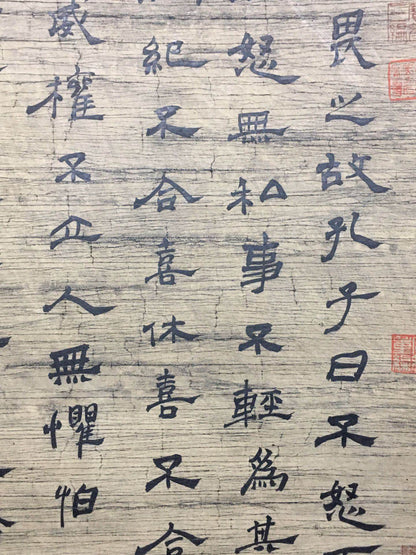 畏之故孔子曰不怒
怒無私事不輕為其
紀不合喜休喜不合
威權不立人無懼怕